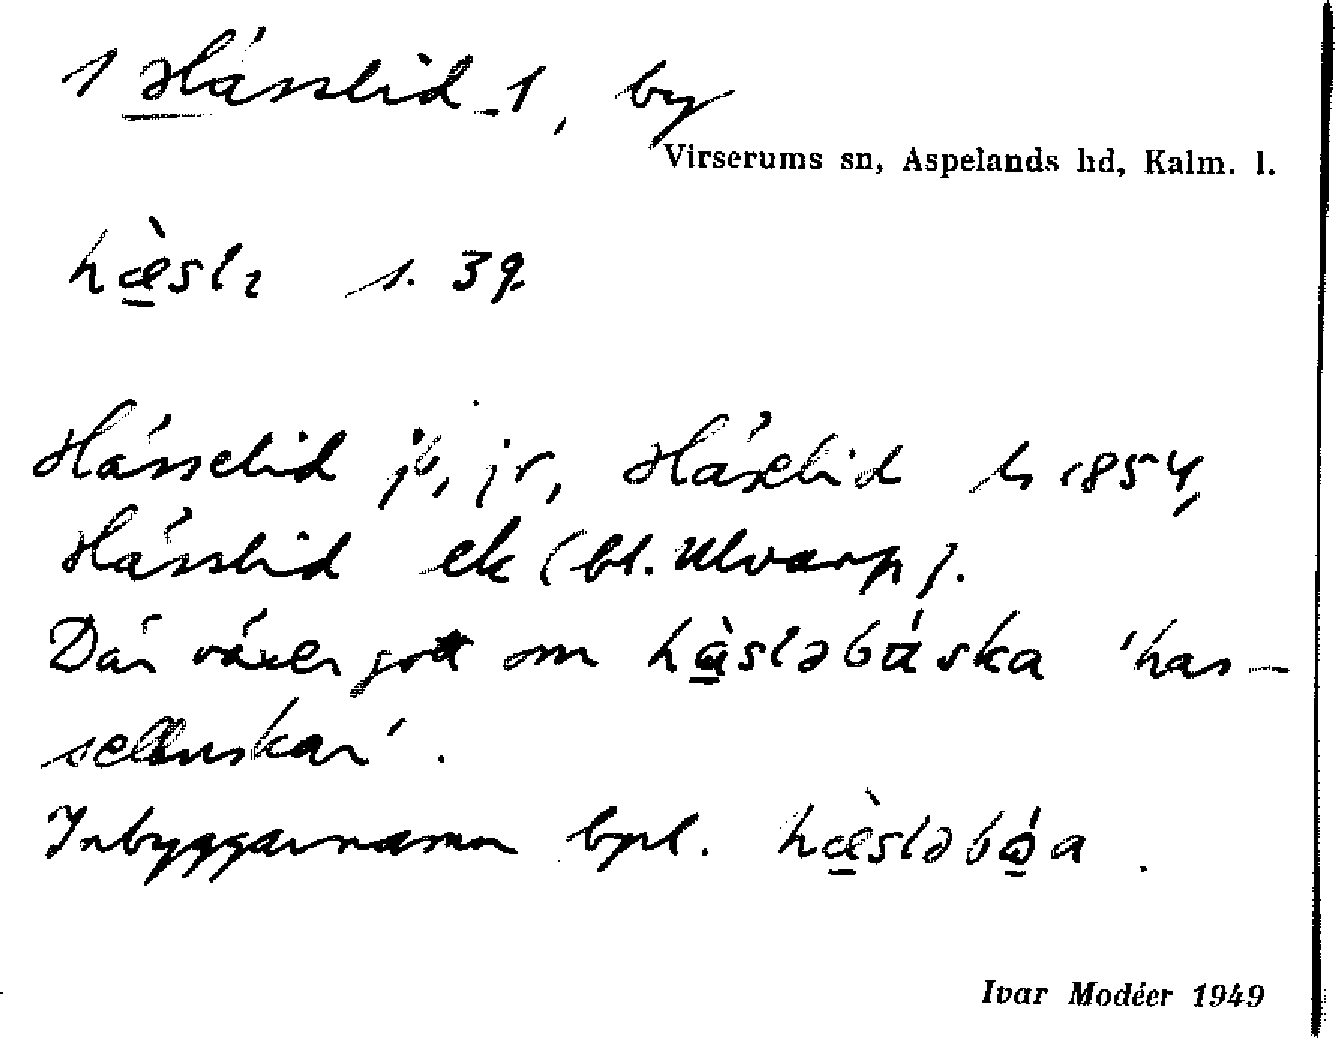 1 Hässlid 1, by
Virserums sn, Aspelands hd, Kalm. l.
hæ̀slɩ s. 39
Hässelid jb, jr, Häxelid ls 1854,
Hässlid ek (bl. Ulvarp).
Där växer gott om hæ̀sləbúska 'has-
selbuskar'.
Inbyggarnamn bpl. hæ̀sləbóa.
Ivar Modéer 1949